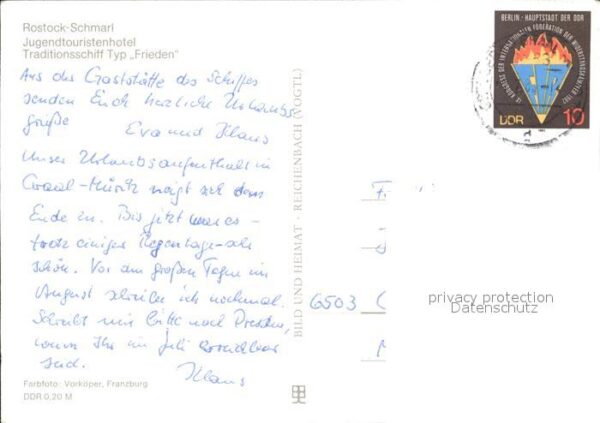 Rostock-Schmarl
Jugendtouristenhotel
Traditionsschiff Typ „Frieden"
Aus der Gaststätte des Schiffes
senden Euch herzliche Urlaubs-
grüße
Eva und Klaus
Unser Urlaubsaufenthalt in
Graal-Müritz neigt sich dem
Ende zu. Bis jetzt war es -
trotz einiger Regentage - als
schön. Vor den großen Tagen im
August schreibe ich nochmal.
Schreibt mir bitte nach Dresden,
wann Ihr im Juli erreichbar
seid.
Klaus
Farbfoto: Vorköper, Franzburg
DDR 0,20 M
BILD UND HEIMAT · REICHENBACH (VOGTL)
BERLIN · HAUPTSTADT DER DDR
IX. KONGRESS DER INTERNATIONALEN FÖDERATION DER WIDERSTANDSKÄMPFER 1982
DDR 10
F
6503
privacy protection
Datenschutz